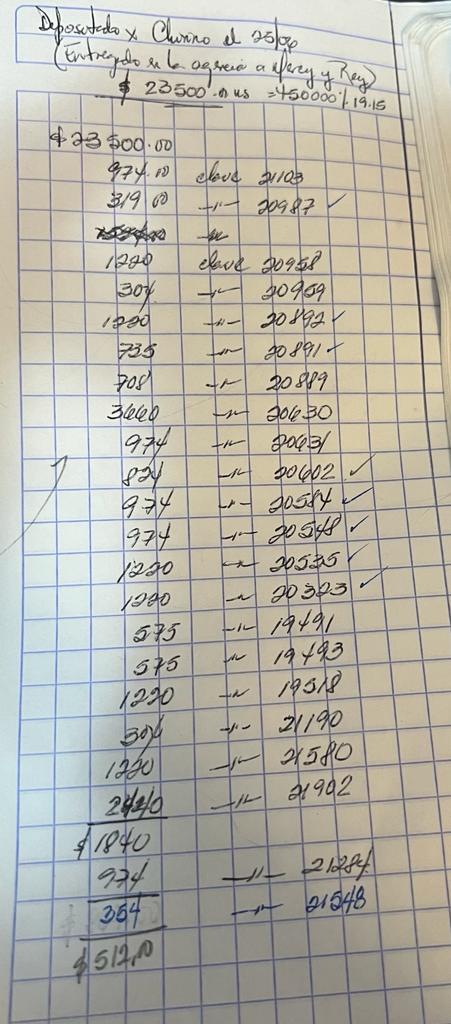 Depositado x Chinino el 25/06
(Entregado en la agencia a Mercy y Rey)
$ 23500.00 us = 450000 / 19.15
$23500.00
974.00 clave 21103
319.00 -"- 20987 ✓
-"-
1220 clave 20958
304 -"- 20959
1220 -"- 20892 ✓
735 -"- 20891 ✓
708 -"- 20889
3660 -"- 20630
974 -"- 20631
824 -"- 20602 ✓
974 -"- 20584 ✓
974 -"- 20548 ✓
1220 -"- 20535 ✓
1220 -"- 20323 ✓
575 -"- 19491
575 -"- 19493
1220 -"- 19518
304 -"- 21190
1220 -"- 21580
2440 -"- 21902
$1840
974 -"- 21284
354 -"- 21548
$512.00